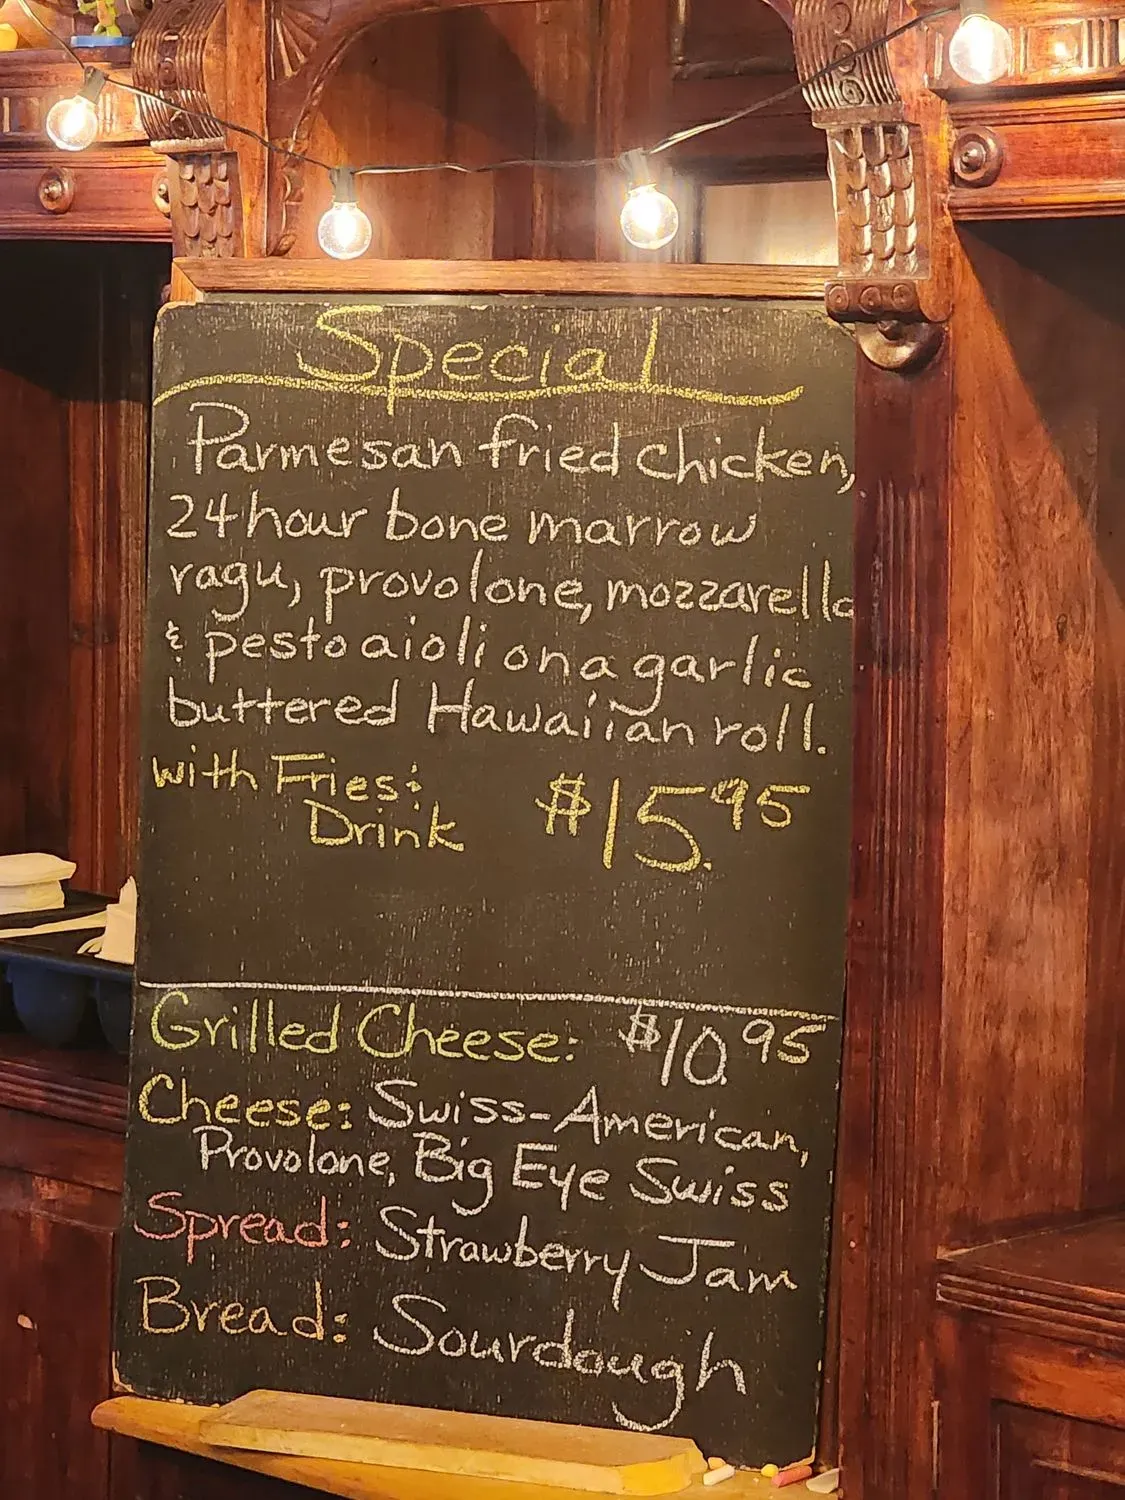 Special
Parmesan fried chicken,
24 hour bone marrow
ragu, provolone, mozzarella
& pesto aioli on a garlic
buttered Hawaiian roll.
with Fries &
Drink $15.95
Grilled Cheese: $10.95
Cheese: Swiss-American,
Provolone, Big Eye Swiss
Spread: Strawberry Jam
Bread: Sourdough